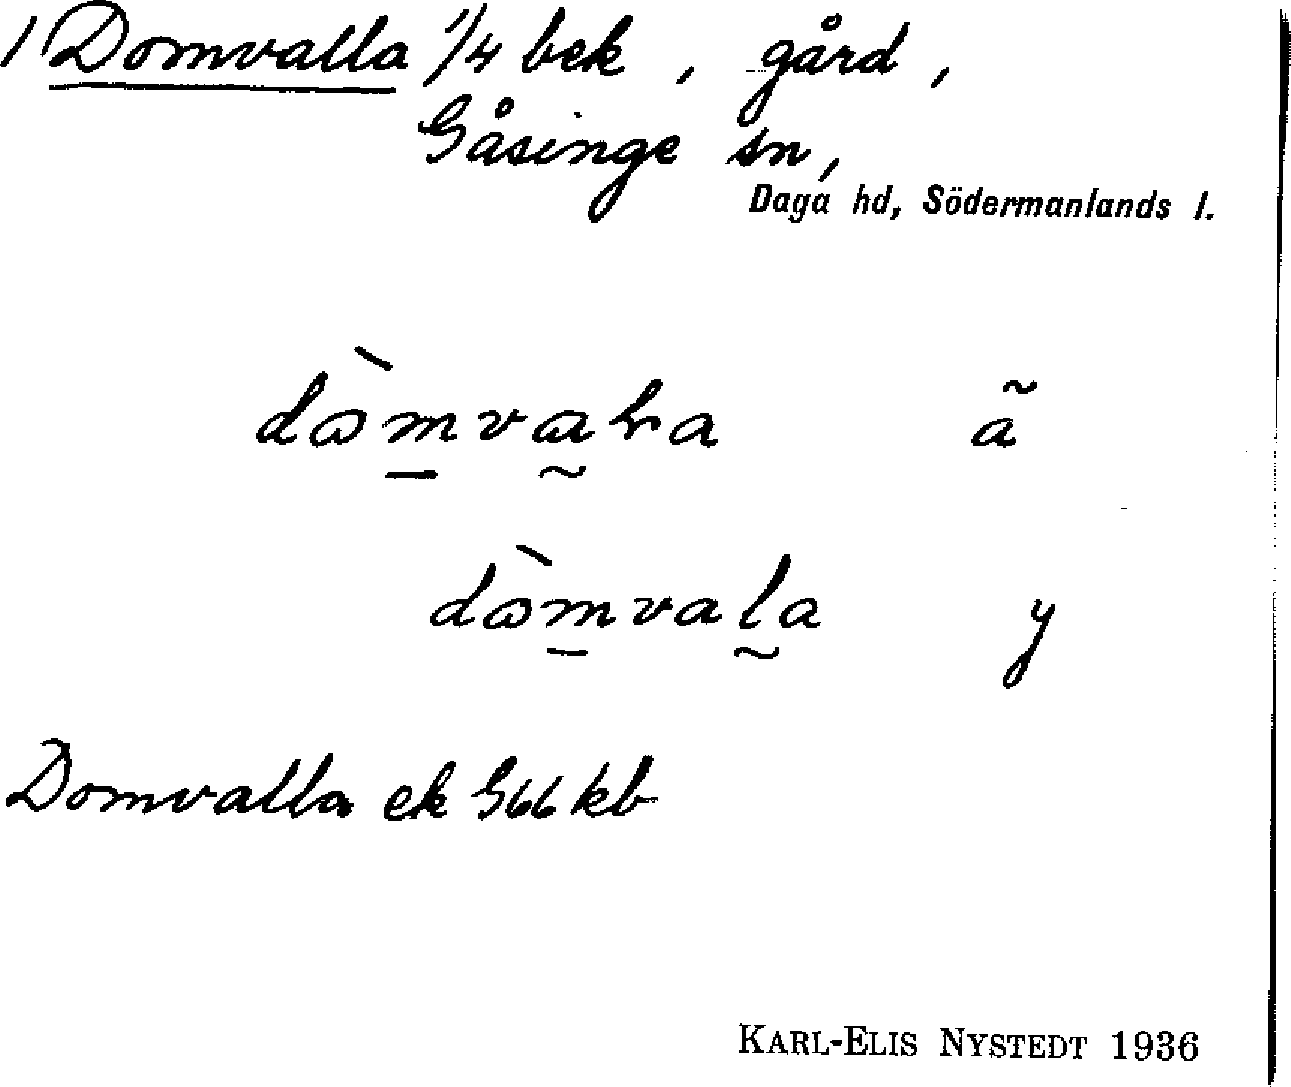 1 Domvalla 1/4 bek, gård,
Gåsinge sn,
Daga hd, Södermanlands l.
ã
dòmvala y
Domvalla ek G66 kb
KARL-ELIS NYSTEDT 1936